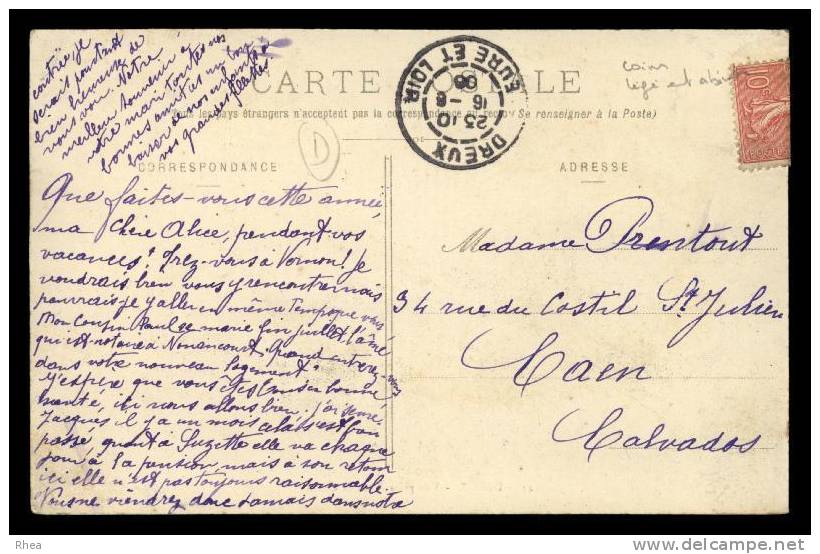 CARTE POSTALE
Tous les pays étrangers n'acceptent pas la correspondance au recto (Se renseigner à la Poste)
CORRESPONDANCE
ADRESSE
Que faites-vous cette année,
ma Chère Alice, pendant vos
vacances? Irez-vous à Vernon! Je
voudrais bien vous y rencontrer mais
pourrais-je y aller en même Temps que vous!
Mon Cousin Paul se marie fin juillet l'aîné
qui est notaire à Nonancourt. Quand entrez-vous
dans votre nouveau logement?
J'espère que vous êtes tous en bonne
santé, ici nous allons bien. J'ai sevré
Jacques il y a un mois cela s'est bien
passé, quant à Suzette elle va chaque
jour à la pension mais à son retour
ici elle n'est pas toujours raisonnable.
Vous ne viendrez donc Jamais dans notre
contrée, je
serais pourtant
bien heureuse de
vous voir. Notre
meilleur souvenir à
votre mari toutes nos
bonnes amitiés un bon
baiser de nos enfants à
vos grandes fillettes
D
DREUX
EURE ET LOIR
16-8
23 10
06
coin
10c
POSTES
Madame Prentout
34 rue du Costil St Julien
Caen
Calvados
Rhea
Posted for sale on delcampe.net